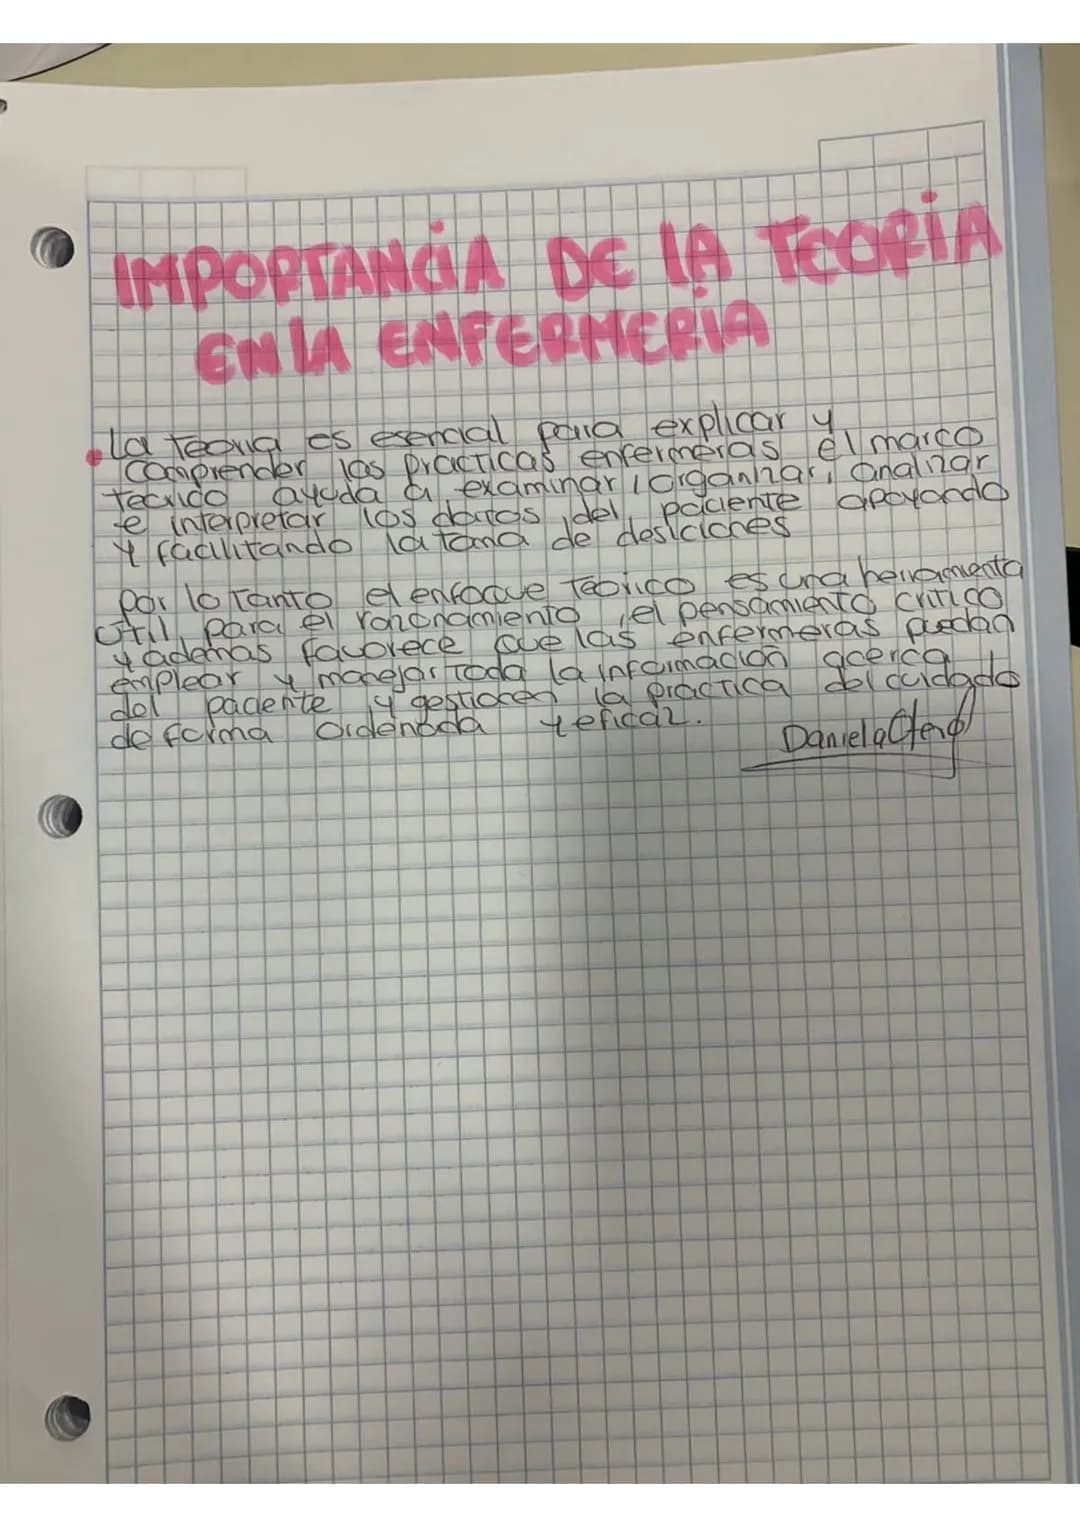 IMPORTANCIA DE LA TEORIA
EN LA ENFERMERIA
La teoria es esencial para explicar y
comprender las practicas enfermeras el marco
tecnico ayuda a examinar, organizar, analizar
e interpretar los datos del paciente apoyando
y facilitando la toma de desiciones
por lo tanto el enfoque teorico es una herramienta
útil para el razonamiento, el pensamiento critico
y ademas favorece que las enfermeras puedan
emplear y manejar toda la información acerca
del paciente y gestionen la practica del cuidado
de forma ordenada y eficaz.
Daniela